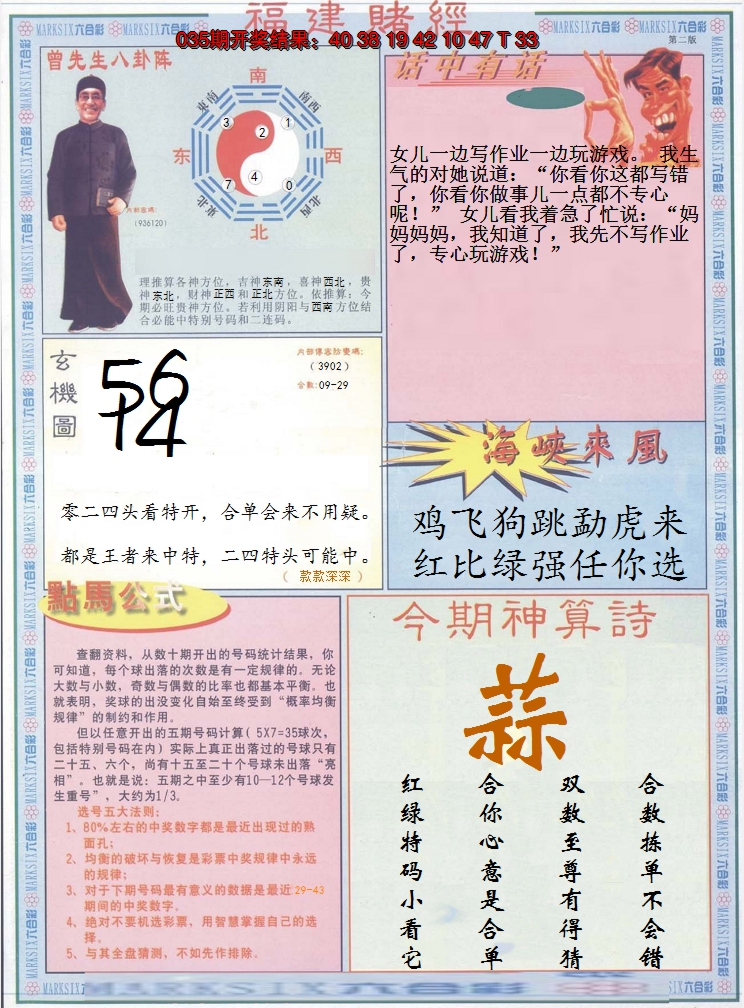 福建賭經
035期开奖结果：40 38 19 42 10 47 T 33
MARKSIX六合彩
第二版
曾先生八卦阵
南
東南
南西
3
2
1
东
西
7
4
0
東北
北西
北
内部密碼：
（936120）
理推算各神方位，吉神东南，喜神西北，贵
神东北，财神正西和正北方位。依推算：今
期必旺贵神方位。若利用阴阳与西南方位结
合必能中特别号码和二连码。
话中有话
女儿一边写作业一边玩游戏。 我生
气的对她说道：“你看你这都写错
了，你看你做事儿一点都不专心
呢！” 女儿看我着急了忙说：“妈
妈妈妈，我知道了，我先不写作业
了，专心玩游戏！”
玄機圖
56
14
（3902）
合數:09-29
零二四头看特开，合单会来不用疑。
都是王者来中特，二四特头可能中。
（ 款款深深 ）
海峽來風
鸡飞狗跳勐虎来
红比绿强任你选
點馬公式
查翻资料，从数十期开出的号码统计结果，你
可知道，每个球出落的次数是有一定规律的。无论
大数与小数，奇数与偶数的比率也都基本平衡。也
就表明，奖球的出没变化自始至终受到“概率均衡
规律”的制约和作用。
但以任意开出的五期号码计算（5X7=35球次，
包括特别号码在内）实际上真正出落过的号球只有
二十五、六个，尚有十五至二十个号球未出落“亮
相”。也就是说：五期之中至少有10—12个号球发
生重号”，大约为1/3。
选号五大法则：
1、80%左右的中奖数字都是最近出现过的熟
面孔；
2、均衡的破坏与恢复是彩票中奖规律中永远
的规律；
3、对于下期号码最有意义的数据是最近29-43
期间的中奖数字。
4、绝对不要机选彩票，用智慧掌握自己的选
择。
5、与其全盘猜测，不如先作排除。
今期神算詩
蒜
合数拣单不会错
双数至尊有得猜
合你心意是合单
红绿特码小看它